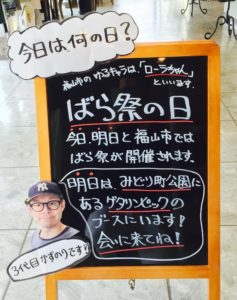 今日は何の日?
福山市のゆるキャラは、「ローラちゃん」
といいます。
ばら祭の日
今日、明日と福山市では
ばら祭が開催されます。
明日は、みどり町公園に
あるゲタリンピックの
ブースにいます!
会いに来てね!
3代目かずのりです!!